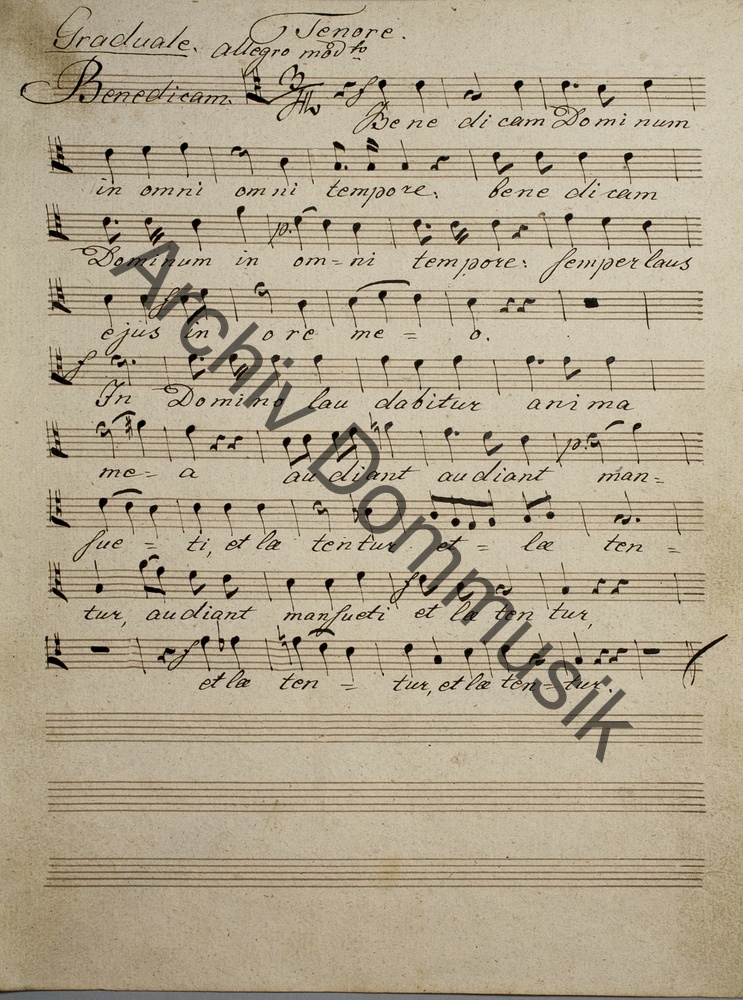 Tenore.
Graduale. allegro modto
Benedicam.
Be ne di cam Domi num
in omni omni tempore: bene dicam
Dominum in om=ni tempore: semper laus
ejus in ore me = o.
In Domino lau dabitur anima
me= a audiant audiant man=
sue = ti, et læ tentur et = læ ten =
tur, audiant mansueti et læ ten tur,
et læ ten = tur, et læ ten = tur.
Archiv Dommusik